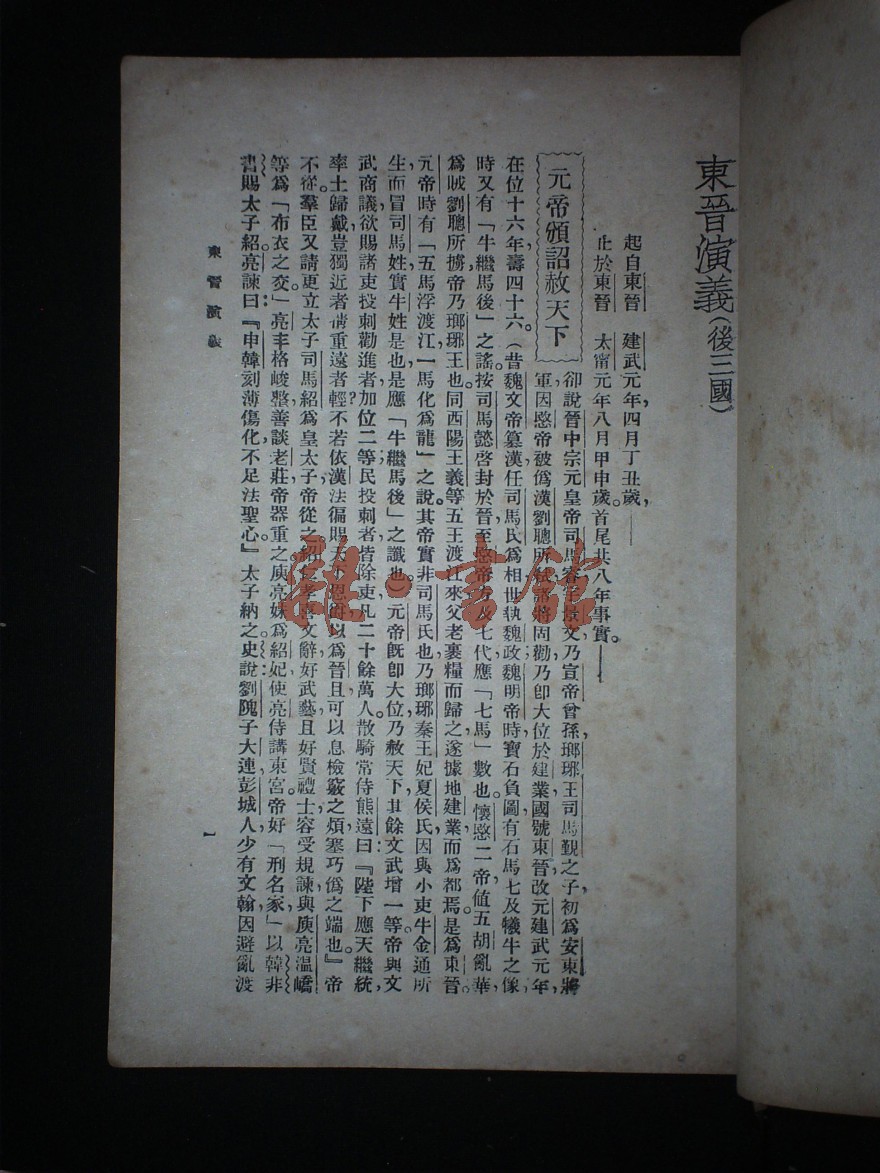 東晉演義(後三國)
起自東晉　建武元年四月丁丑歲，
止於東晉　太甯元年八月甲申歲。首尾共八年事實。
元帝頒詔赦天下
卻說晉中宗元皇帝司馬睿字景文乃宣帝曾孫，瑯琊王司馬覲之子，初爲安東將
軍，因愍帝被僞漢劉聰所弒，諸將固勸，乃卽大位於建業，國號東晉，改元建武元年，
在位十六年，壽四十六。(昔魏文帝篡漢，任司馬氏爲相，世執魏政，魏明帝時，寶石負圖，有石馬七及犧牛之像，
時又有「牛繼馬後」之謠。按司馬懿啓封於晉，至愍帝方及七代，應「七馬」數也。懷愍二帝値五胡亂華，
爲賊劉聰所擄，帝乃瑯琊王也。同西陽王羕等五王渡江來，父老裹糧而歸之，遂據地建業而爲都焉。是爲東晉。
元帝時有「五馬浮渡江，一馬化爲龍」之說。其帝實非司馬氏也，乃瑯琊秦王妃夏侯氏，因與小吏牛金通所
生，而冒司馬姓，實牛姓是也，是應「牛繼馬後」之讖也。)元帝旣卽大位，乃赦天下，其餘文武增一等。帝與文
武商議，欲賜諸吏投刺勸進者，加位二等，民投刺者，皆除吏，凡二十餘萬人。散騎常侍熊遠曰：『陛下應天繼統，
率土歸戴，豈獨近者情重，遠者輕？不若依漢法徧賜天下，恩
以爲晉，且可以息檢竅之煩，塞巧僞之端也。』帝
不從。羣臣又請更立太子司馬紹爲皇太子，帝從之。紹仁孝，喜文辭，好武藝，且好賢禮士，容受規諫，與庾亮、温嶠
等爲「布衣之交。」亮丰格峻整，善談老莊，帝器重之。庾亮妹爲紹妃，使亮侍講東宮。帝好「刑名家，」以韓非
書賜太子紹，亮諫曰：『申韓刻薄傷化，不足法聖心。』太子納之。史說：劉隗子大連，彭城人，少有文翰，因避亂渡
東晉演義
1
雒·書館